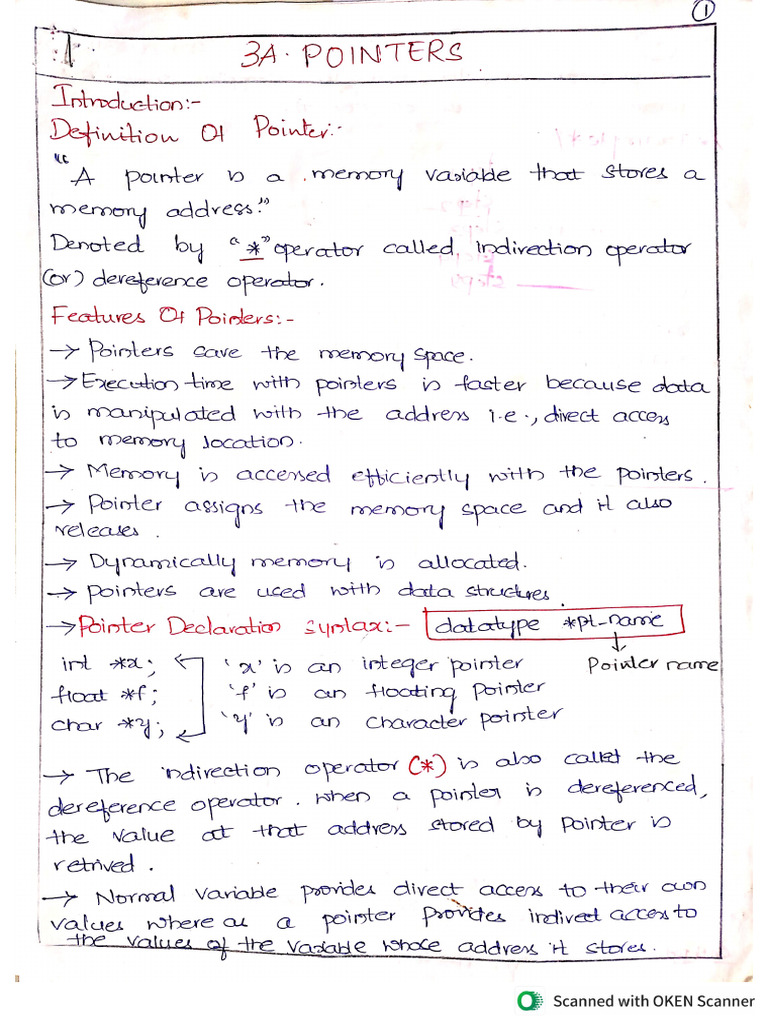 1
3A. POINTERS
Introduction:-
Definition Of Pointer:-
"A pointer is a memory variable that stores a
memory address."
Denoted by "*" operator called, indirection operator
(or) dereference operator.
Features Of Pointers:-
→ Pointers save the memory space.
→ Execution time with pointers is faster because data
is manipulated with the address i.e., direct access
to memory location.
→ Memory is accessed efficiently with the pointers.
→ Pointer assigns the memory space and it also
releases.
→ Dynamically memory is allocated.
→ Pointers are used with data structures.
→ Pointer Declaration Syntax:- datatype *pt-name
Pointer name
int *x; 'x' is an integer pointer
float *f; 'f' is an floating pointer
char *y; 'y' is an character pointer
→ The indirection operator (*) is also called the
dereference operator. when a pointer is dereferenced,
the value at that address stored by pointer is
retrived.
→ Normal variable provides direct access to their own
values where as a pointer provides indirect access to
the values of the variable whose address it stores.
Scanned with OKEN Scanner